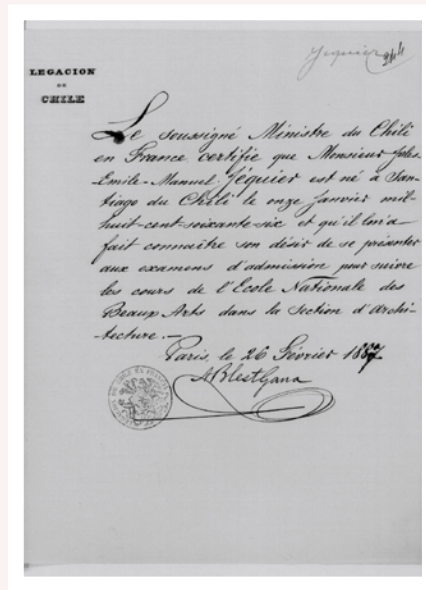 Jequier 244
LEGACION
DE
CHILE
Le soussigné Ministre du Chili
en France certifie que Monsieur Jules-
-Emile-Manuel Jéquier est né à San-
tiago du Chili le onze Janvier mil-
huit-cent-soixante-six et qu'il m'a
fait connaître son désir de se présenter
aux examens d'admission pour suivre
les cours de l'Ecole Nationale des
Beaux Arts dans la Section d'Archi-
-tecture.-
Paris, le 26 Février 1887
A Blest Gana